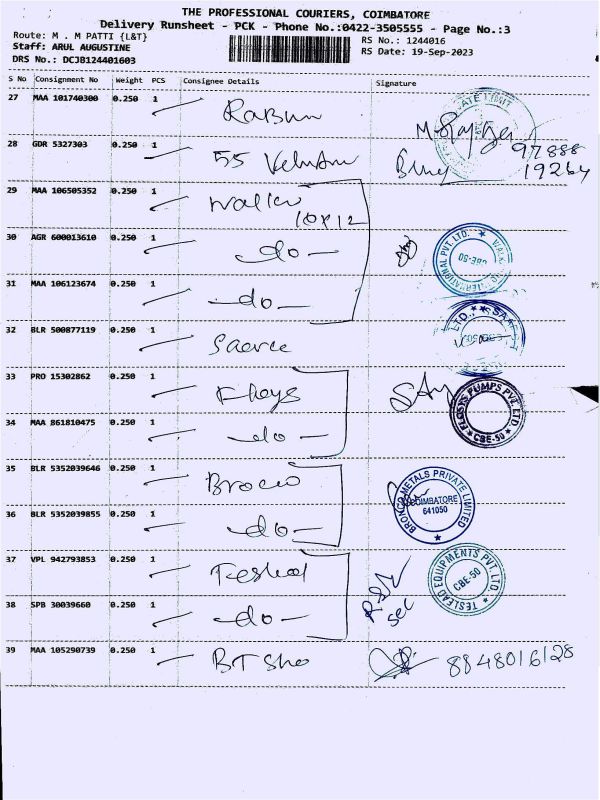 THE PROFESSIONAL COURIERS, COIMBATORE
Delivery Runsheet - PCK - Phone No.:0422-3505555 - Page No.:3
Route: M . M PATTI {L&T}
Staff: ARUL AUGUSTINE
DRS No.: DCJB124401603
RS No.: 1244016
RS Date: 19-Sep-2023
S No Consignment No Weight PCS Consignee Details Signature
27 MAA 101740300 0.250 1
28 GDR 5327303 0.250 1 55
97888
19264
29 MAA 106505352 0.250 1
10x12
30 AGR 600013610 0.250 1 -do-
31 MAA 106123674 0.250 1 -do-
32 BLR 500877119 0.250 1
33 PRO 15302862 0.250 1
FLOSYS PUMPS PVT. LTD
CBE-50
34 MAA 861810475 0.250 1 -do-
35 BLR 5352039646 0.250 1
BRONCO METALS PRIVATE LIMITED
COIMBATORE
641050
36 BLR 5352039855 0.250 1 -do-
37 VPL 942793853 0.250 1
TESLEAD EQUIPMENTS PVT. LTD.
CBE-50
38 SPB 30039660 0.250 1 -do-
39 MAA 105290739 0.250 1
8848016128